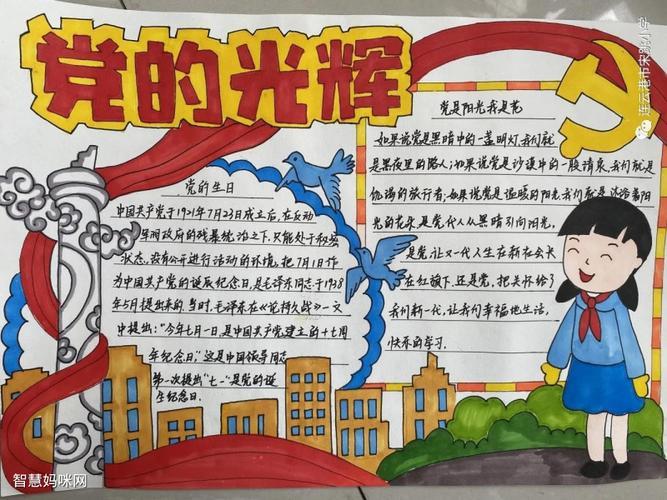 党的光辉
党的生日
中国共产党于1921年7月23日成立后,在反动
军阀政府的残暴统治之下,只能处于秘密
状态,没有公开进行活动的环境,把7月1日作
为中国共产党的诞辰纪念日,是毛泽东同志于1938
年5月提出来的.当时,毛泽东在《论持久战》一文
中提出:"今年七月一日,是中国共产党建立的十七周
年纪念日,"这是中国领导同志
第一次提出"七一"是党的诞
生纪念日.
党是阳光我是花
如果说党是黑暗中的一盏明灯,我们就
是黑夜里的路人;如果说党是沙漠中的一股清泉,我们就是
饥渴的旅行者;如果说党是温暖的阳光,我们就是沐浴着阳
光的花朵,是党代人从黑暗引向阳光,
是党,让一代人生在新在会长
在红旗下,还是党,把关怀给了
我们新一代,让我们幸福地生活,
快乐的学习.
连云港市宋跳小学
智慧妈咪网